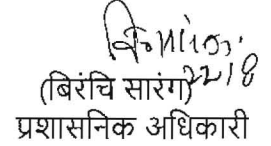 22/8
(बिरंचि सारंग)
प्रशासनिक अधिकारी